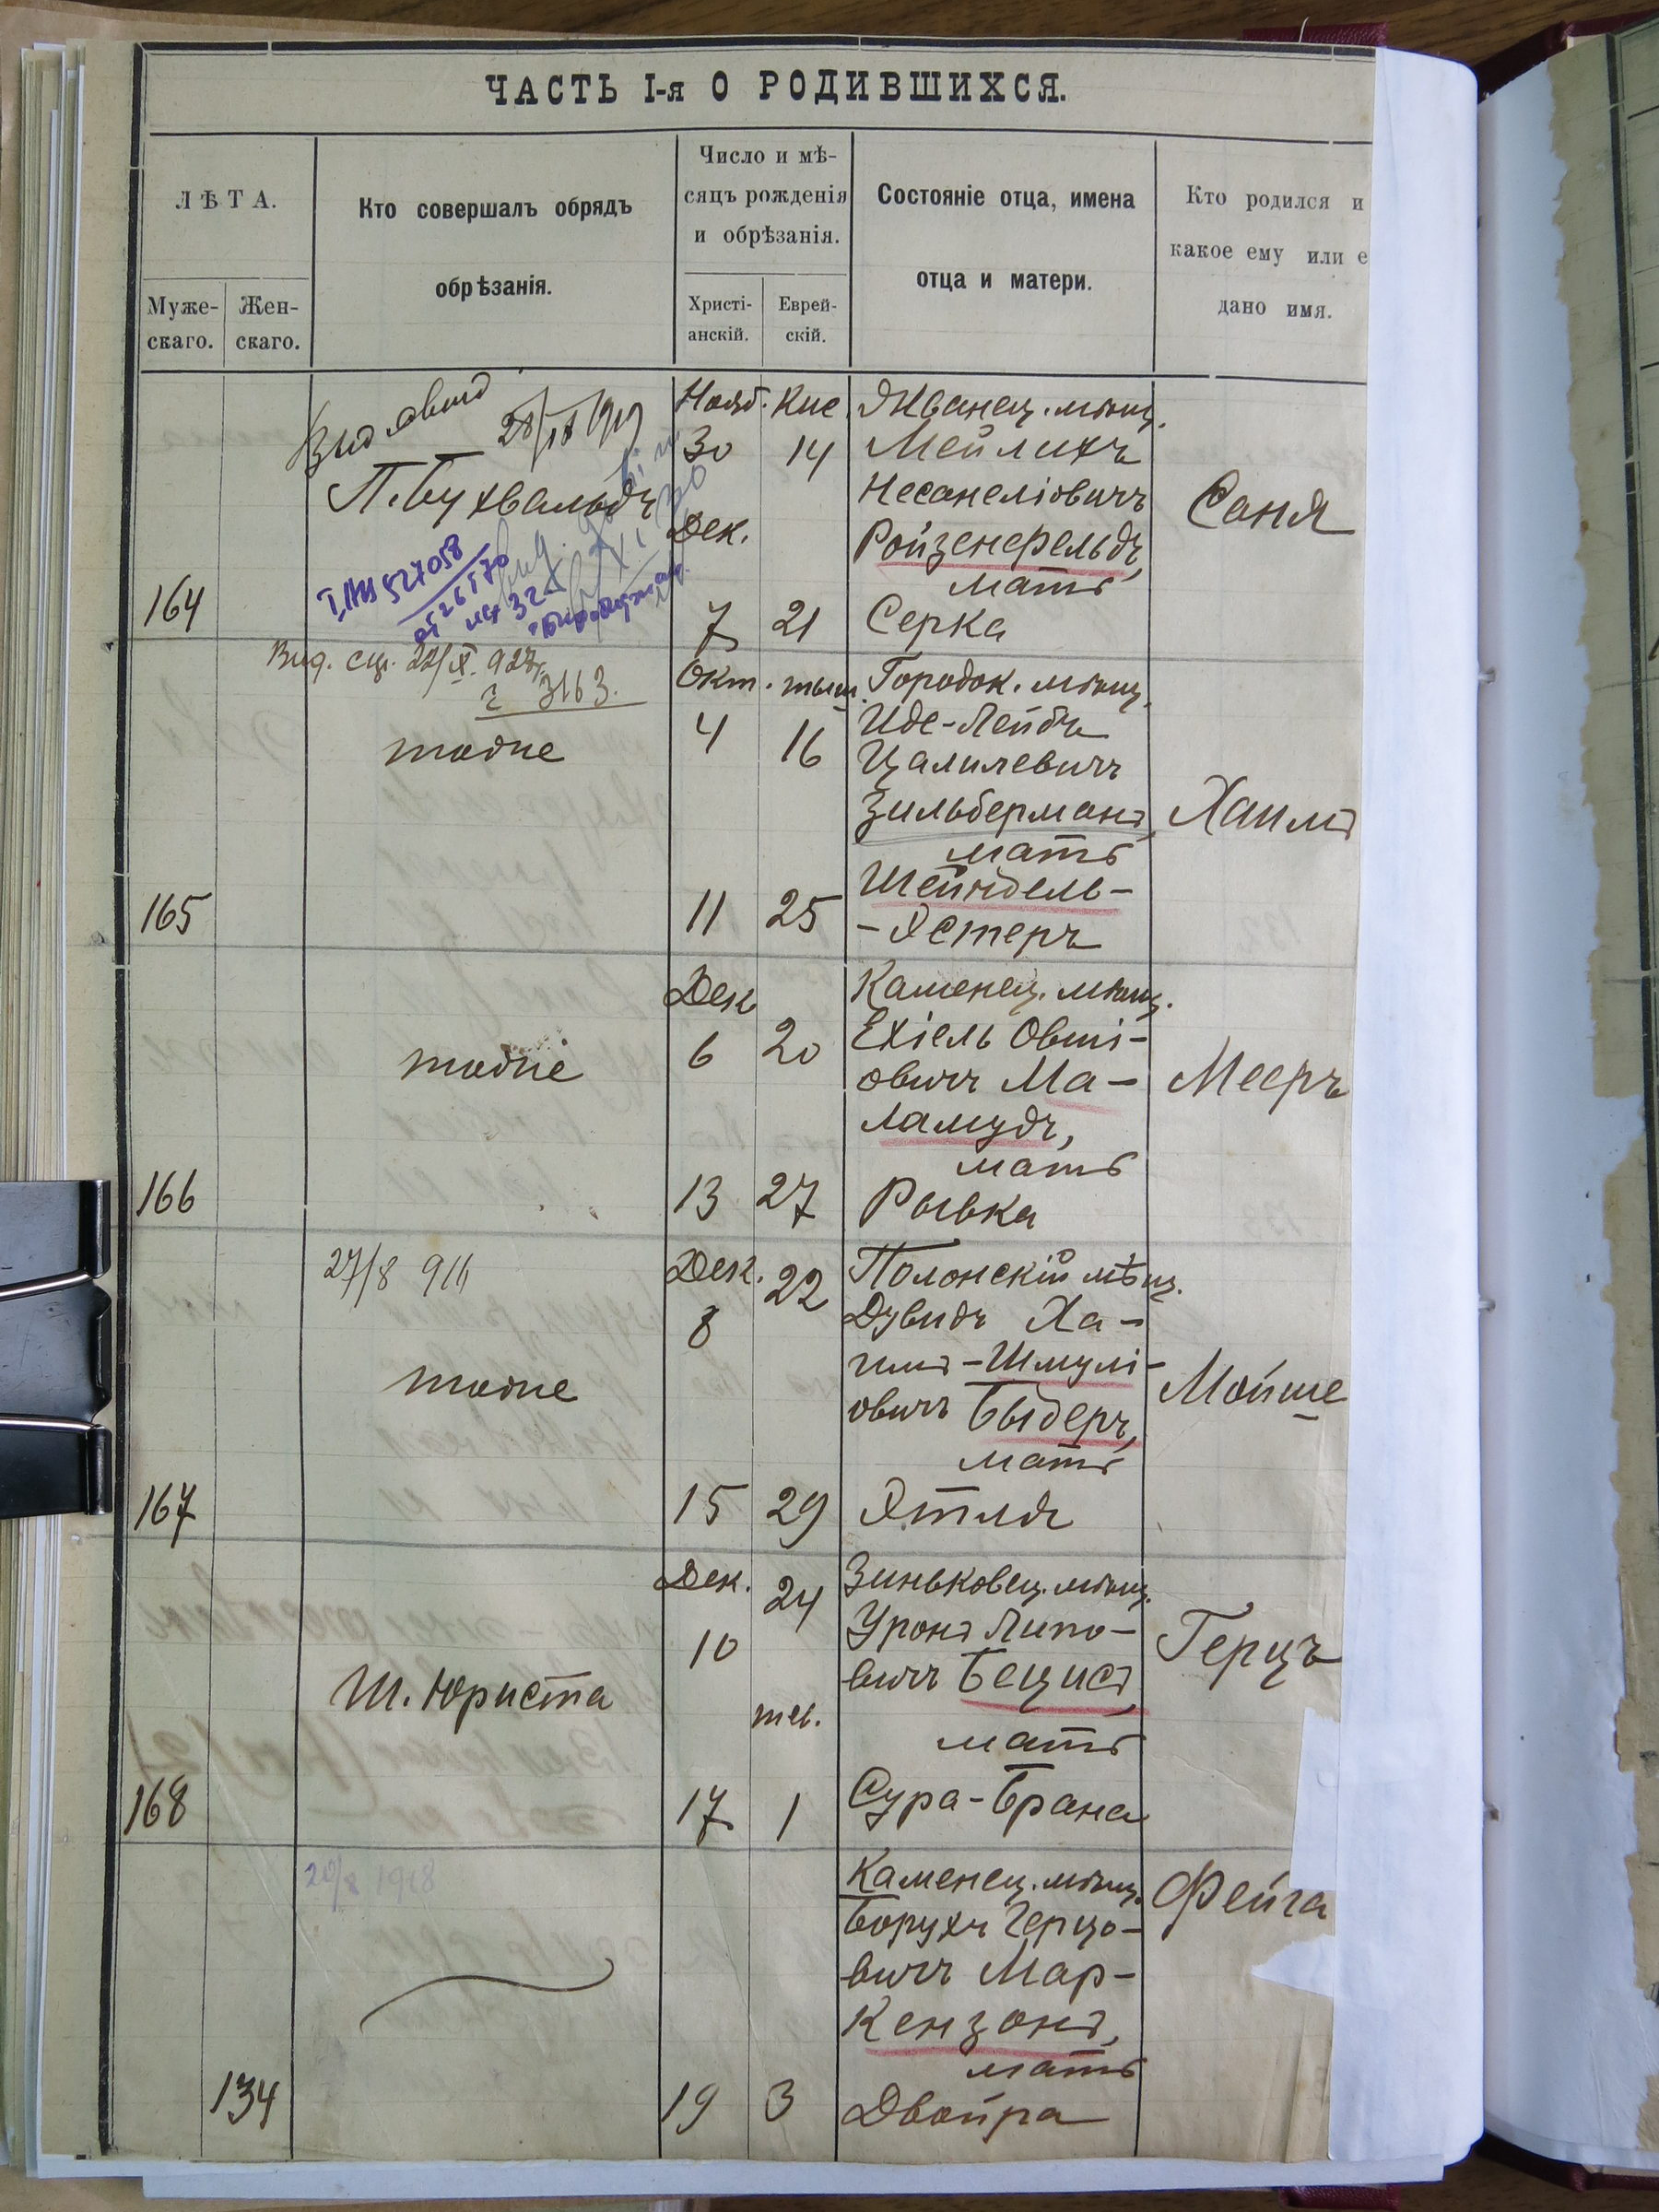 ЧАСТЬ I-я О РОДИВШИХСЯ.
ЛѢТА.
Муже-
скаго.
Жен-
скаго.
Кто совершалъ обрядъ
обрѣзанія.
Число и мѣ-
сяцъ рожденія
и обрѣзанія.
Христі-
анскій.
Еврей-
скій.
Состояніе отца, имена
отца и матери.
Кто родился и
какое ему или е
дано имя.
164
П. Бухвальдъ
527058
Нояб. Кис.
30 14
Дек.
7 21
Жванец. мѣщ.
Мейлихъ
Несанеліовичъ
Ройзенфельдъ,
мать
Серка
Саня
Вид. 22/X. 927
3163.
165
тоже
Окт.
4 16
11 25
Городок. мѣщ.
Иде-Лейбъ
Цалилевичъ
Зильберманъ,
мать
Шейндель-
-Эстеръ
Хаимъ
166
тоже
Дек
6 20
13 27
Каменец. мѣщ.
Ехіель Овші-
овичъ Ма-
ламудъ,
мать
Рывка
Мееръ
27/8 911
167
тоже
Дек. 22
8
15 29
Полонскій мѣщ.
Дувидъ Ха-
имъ-Шмулі-
овичъ Быдеръ,
мать
Этля
Мойше
168
Ш. Юриста
Дек. 24
10
тев.
17 1
Зиньковец. мѣщ.
Уронъ Липо-
вичъ Бецисъ,
мать
Сура-Брана
Герцъ
20/8 1918
134
19 3
Каменец. мѣщ.
Борухъ Герцо-
вичъ Мар-
кензонъ,
мать
Двойра
Фейга